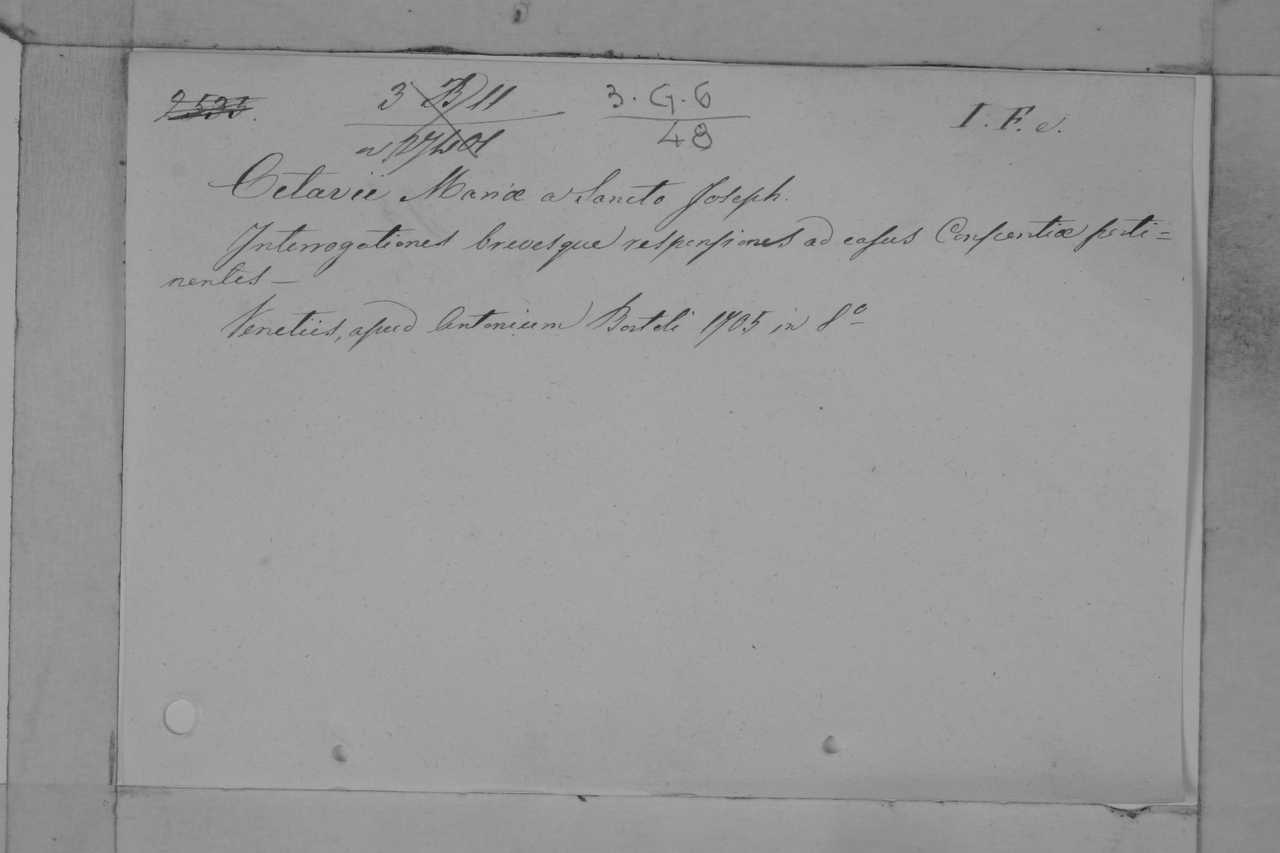 2535.
3 B 11
3. G. 6
48
I. F. e.
Octavii Mariæ a Sancto Joseph.
Interrogationes brevesque responsiones ad casus Conscientiæ perti=
nentes —
Venetiis, apud Antonium Bortoli 1705 in 8º